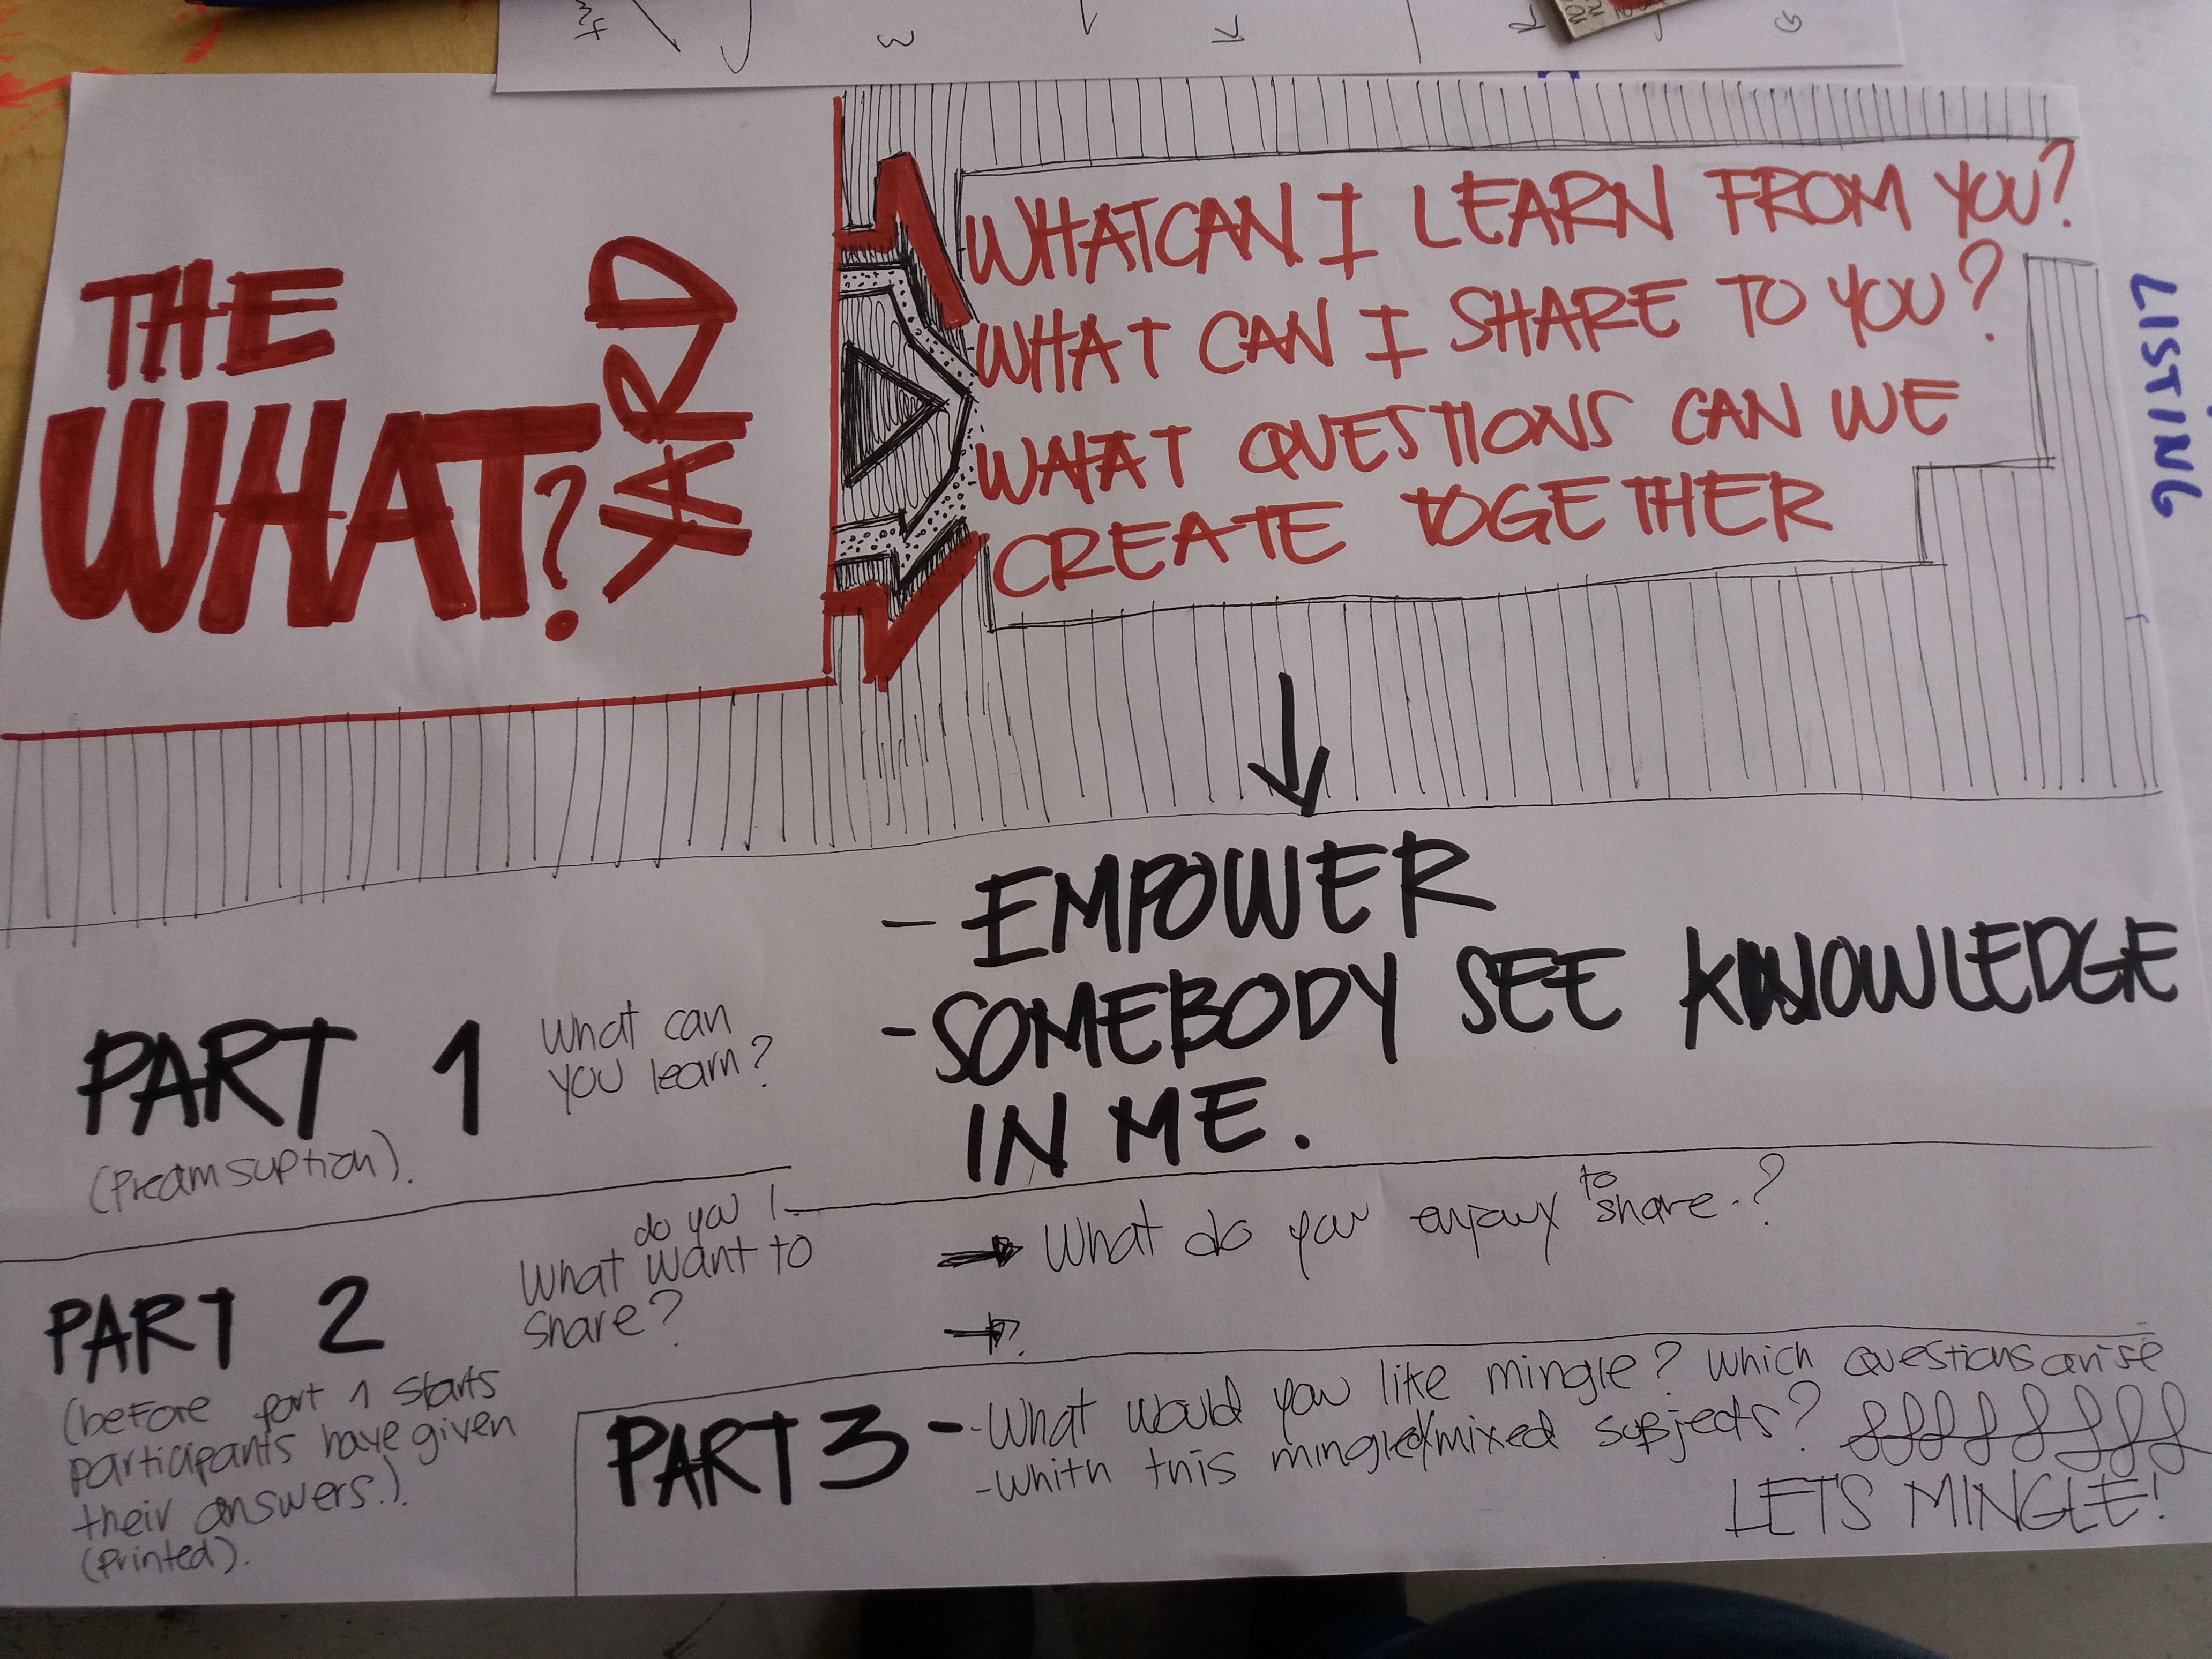 THE
WHAT?
YARD
WHAT CAN I LEARN FROM YOU?
WHAT CAN I SHARE TO YOU?
WAHAT QUESTIONS CAN WE
CREATE TOGETHER
LISTING
- EMPOWER
- SOMEBODY SEE KNOWLEDGE
IN ME.
PART 1
What can
you learn?
(Preamsuption).
PART 2
do you
What want to
share?
(before part 1 starts
participants have given
their answers.)
(Printed).
to
What do you enjoy share.?
?
PART 3 - - What would you like mingle? Which questions arise
- whith this mingled/mixed subjects?
LETS MINGLE!